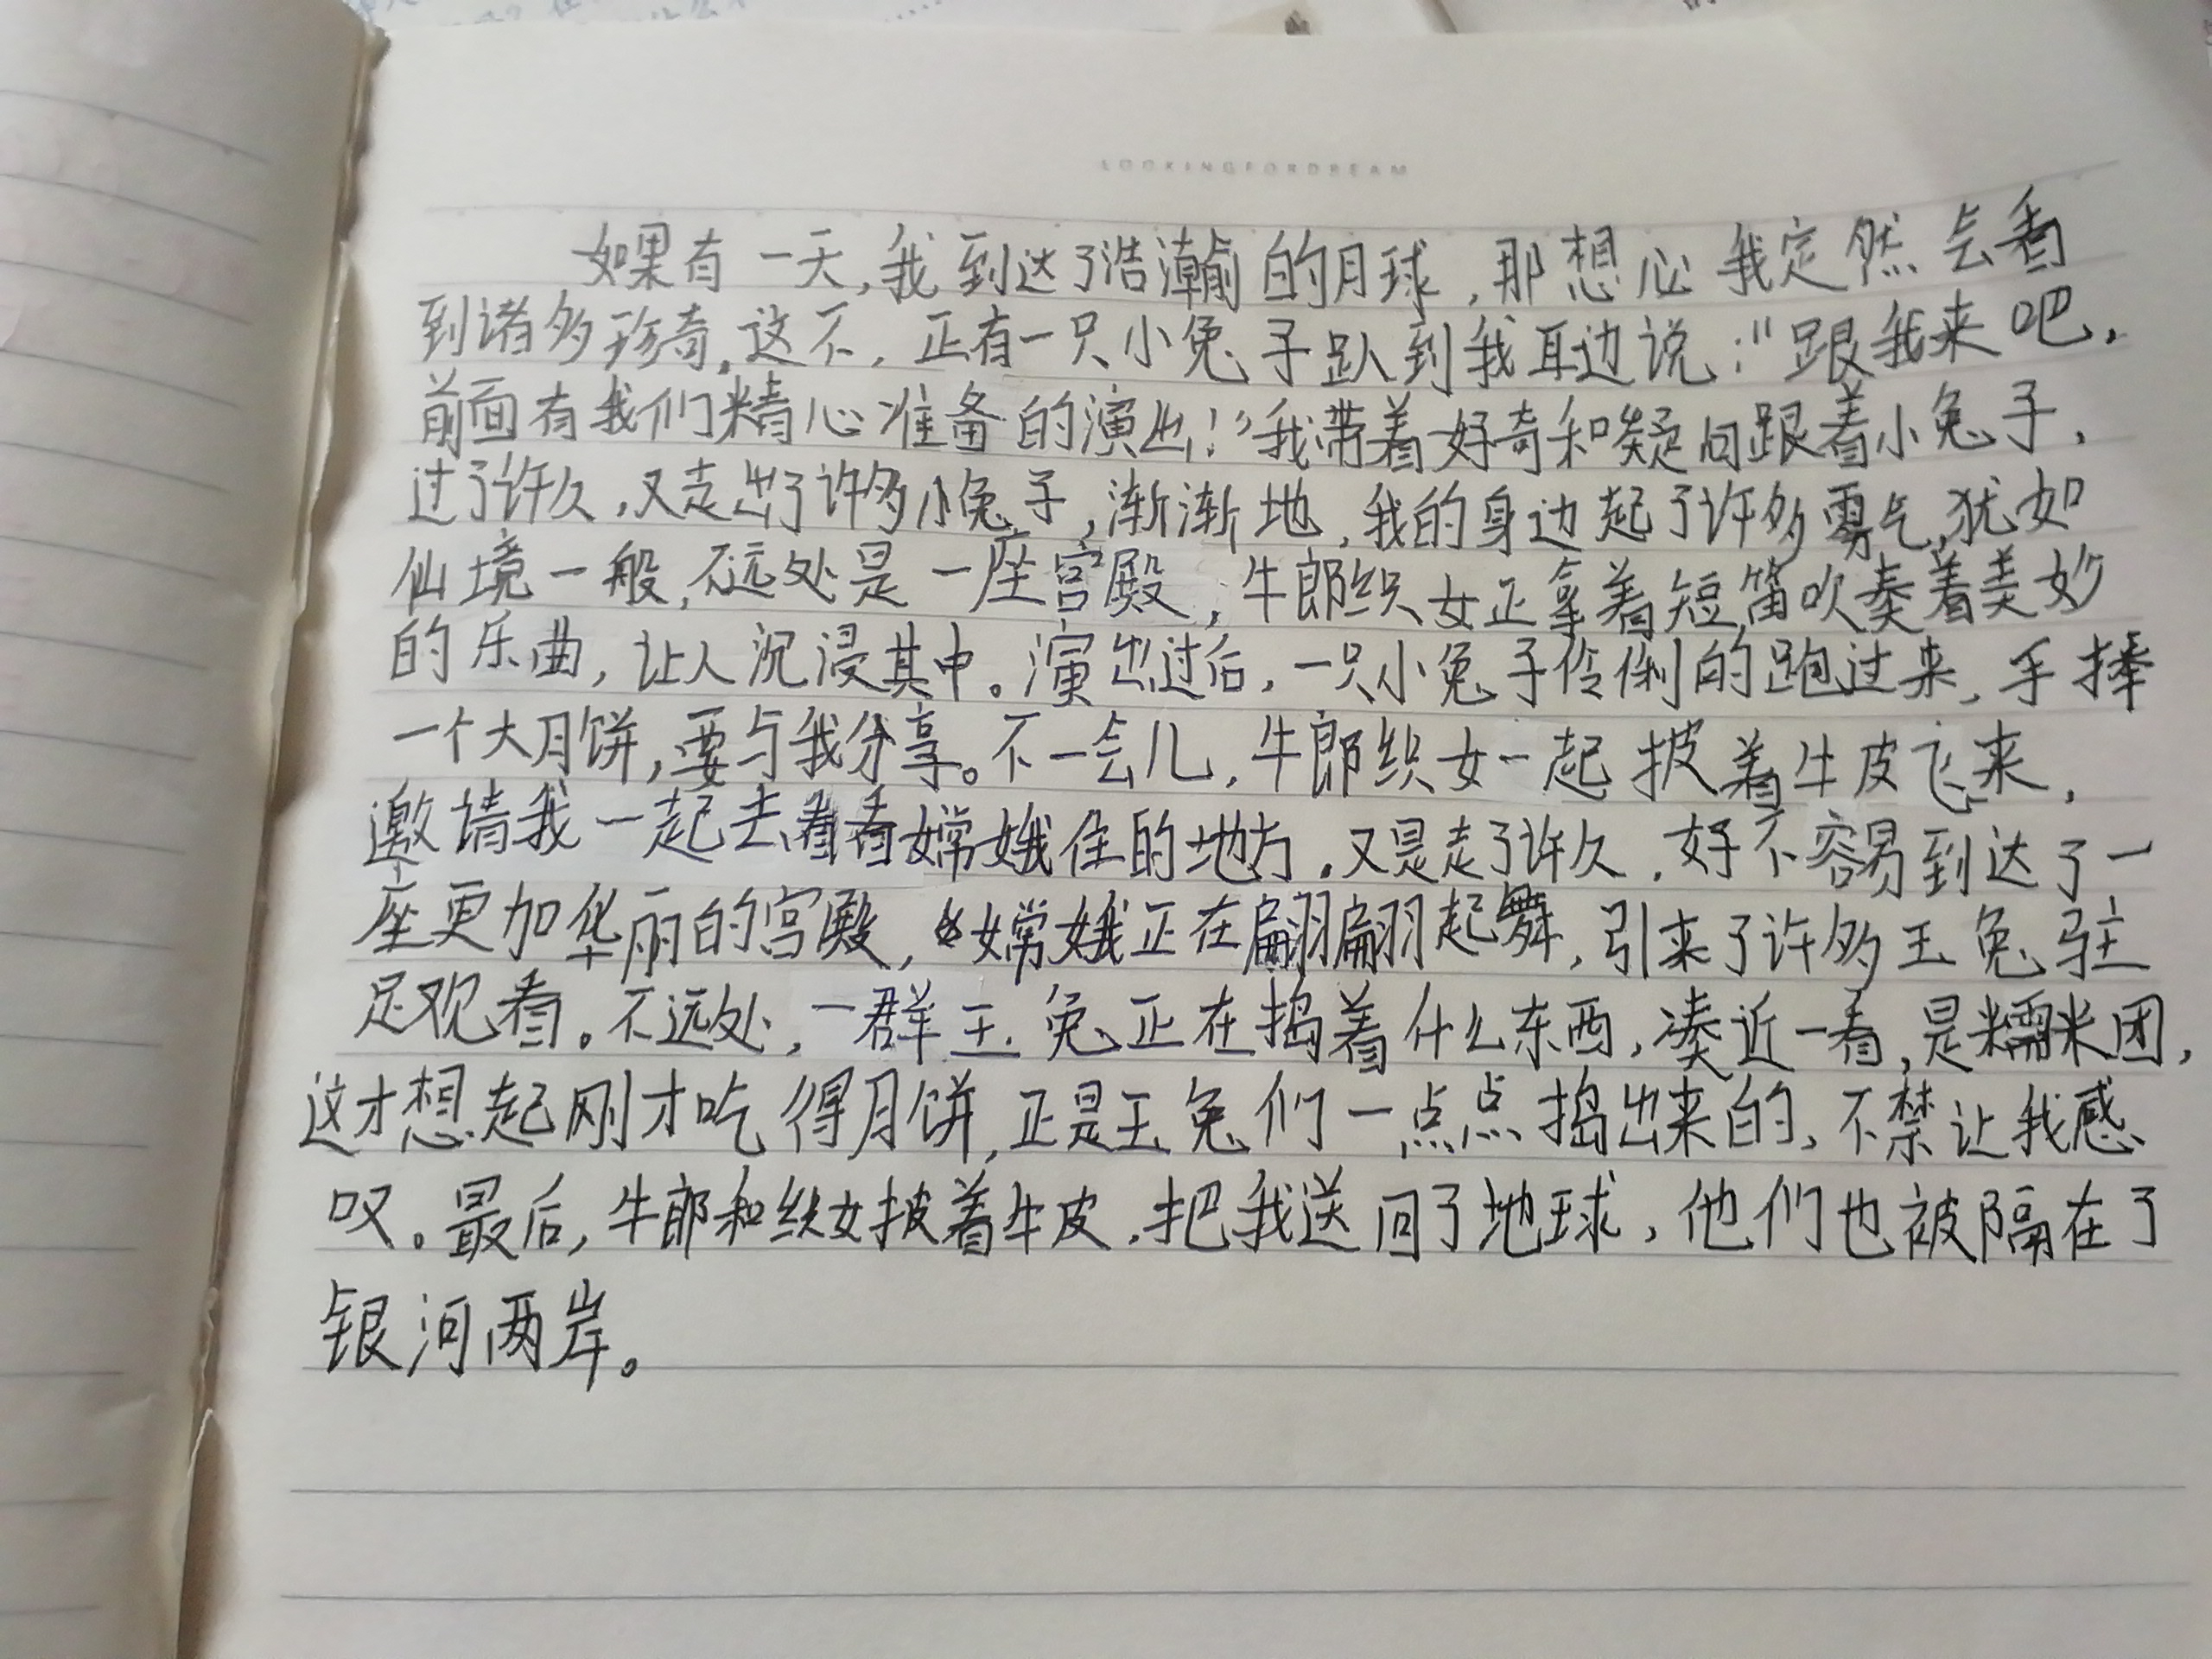 LOOKINGFORDREAM
如果有一天,我到达了浩瀚的月球,那想必我定然会看
到诸多珍奇,这不,正有一只小兔子趴到我耳边说:"跟我来吧,
前面有我们精心准备的演出!"我带着好奇和疑问跟着小兔子,
过了许久,又走出了许多小兔子,渐渐地,我的身边起了许多雾气,犹如
仙境一般,不远处是一座宫殿,牛郎织女正拿着短笛吹奏着美妙
的乐曲,让人沉浸其中。演出过后,一只小兔子伶俐的跑过来,手捧
一个大月饼,要与我分享。不一会儿,牛郎织女一起披着牛皮飞来,
邀请我一起去看看嫦娥住的地方,又是走了许久,好不容易到达了一
座更加华丽的宫殿,嫦娥正在翩翩起舞,引来了许多玉兔驻
足观看。不远处,一群玉兔正在捣着什么东西,凑近一看,是糯米团,
这才想起刚才吃得月饼,正是玉兔们一点点捣出来的,不禁让我感
叹。最后,牛郎和织女披着牛皮,把我送回了地球,他们也被隔在了
银河两岸。